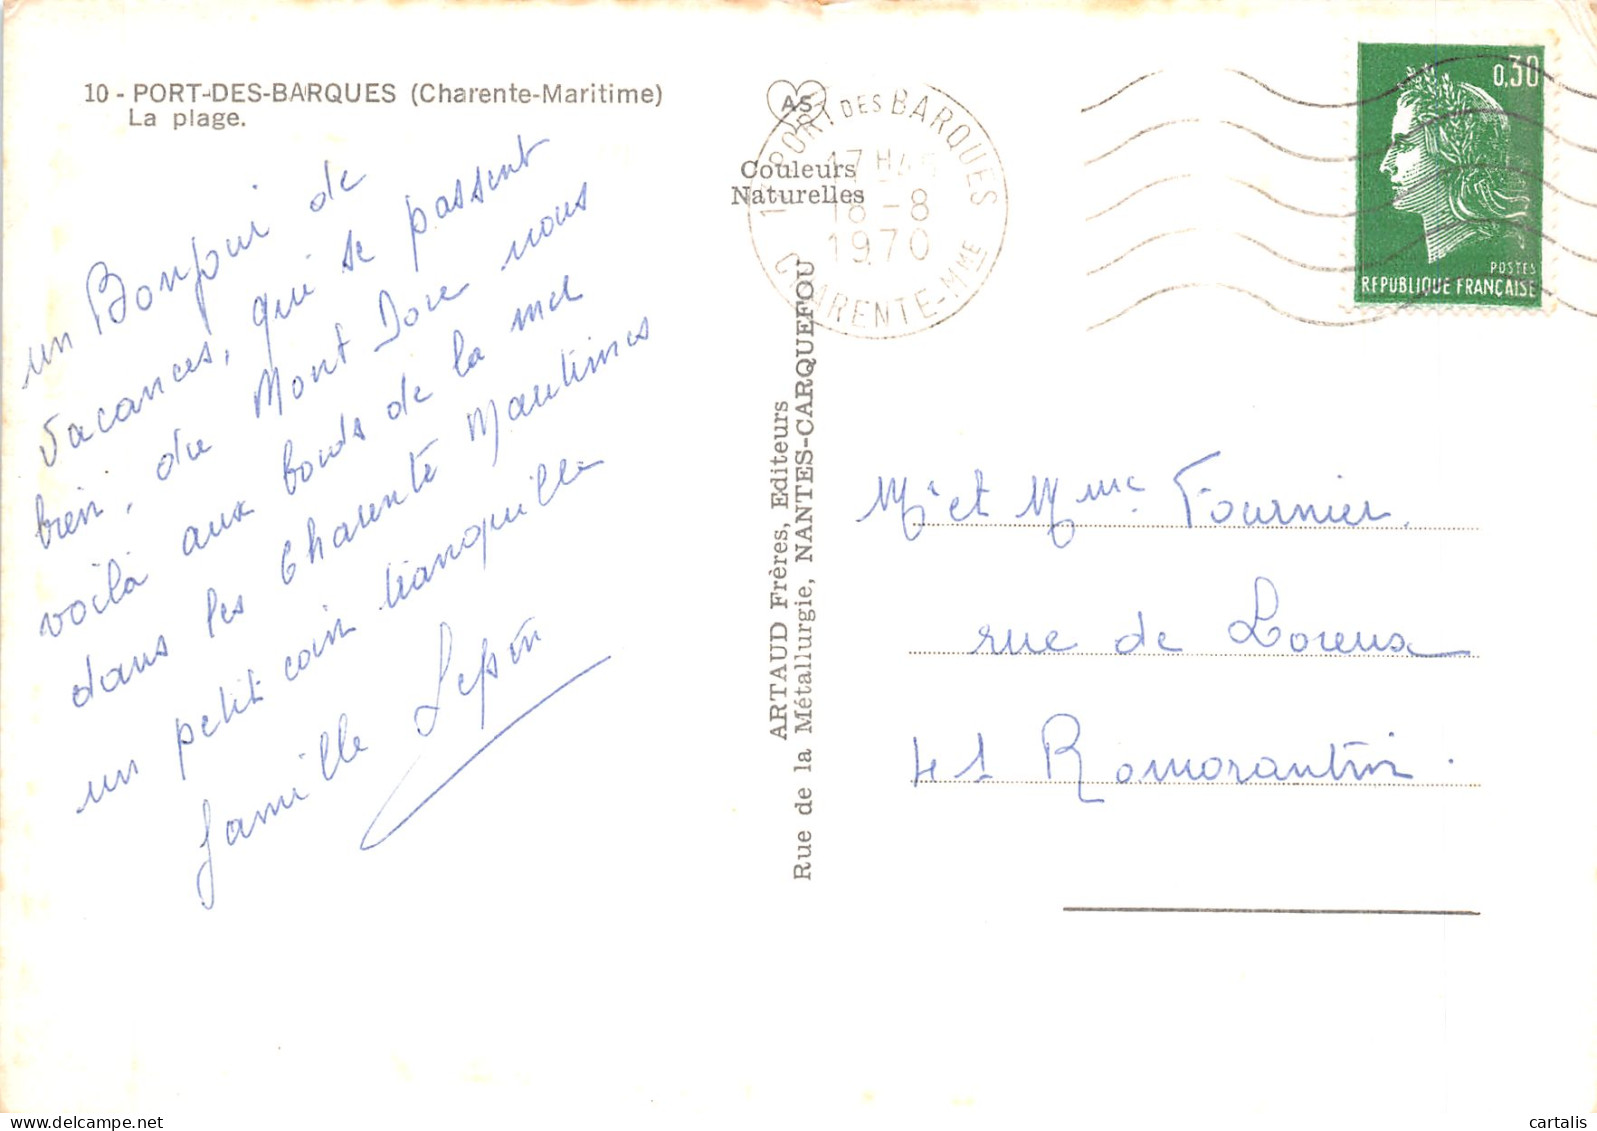 10 - PORT-DES-BARQUES (Charente-Maritime)
La plage.
un Bonjour de
vacances, qui se passent
bien, du Mont Dore nous
voilà aux bords de la mer
dans les Charente Maritimes
un petit coin tranquille
famille Lepin
AS
Couleurs
Naturelles
17 PORT DES BARQUES
17 H 45
18 - 8
1970
CHARENTE-MME
ARTAUD Frères, Editeurs
Rue de la Métallurgie, NANTES-CARQUEFOU
0,30
POSTES
REPUBLIQUE FRANÇAISE
Mr et Mme Fournier
rue de
41 Romorantin.
cartalis